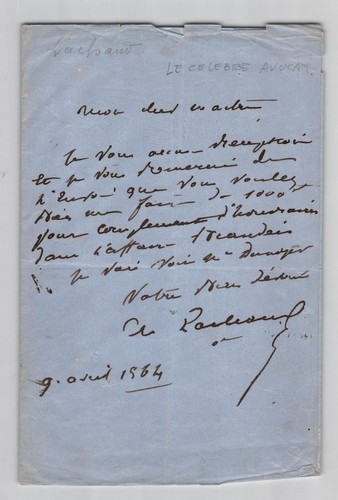 Lachaud
LE CELEBRE AVOCAT.
Mon cher maître
Je vous accuse réception
Et je vous remercie de
l'Envoi que vous voulez
bien me faire de 1000 f
Pour complément d'honoraires
dans l'affaire
Je vais voir Mr
Votre bien dévoué
Ch Lachaud
9 avril 1864